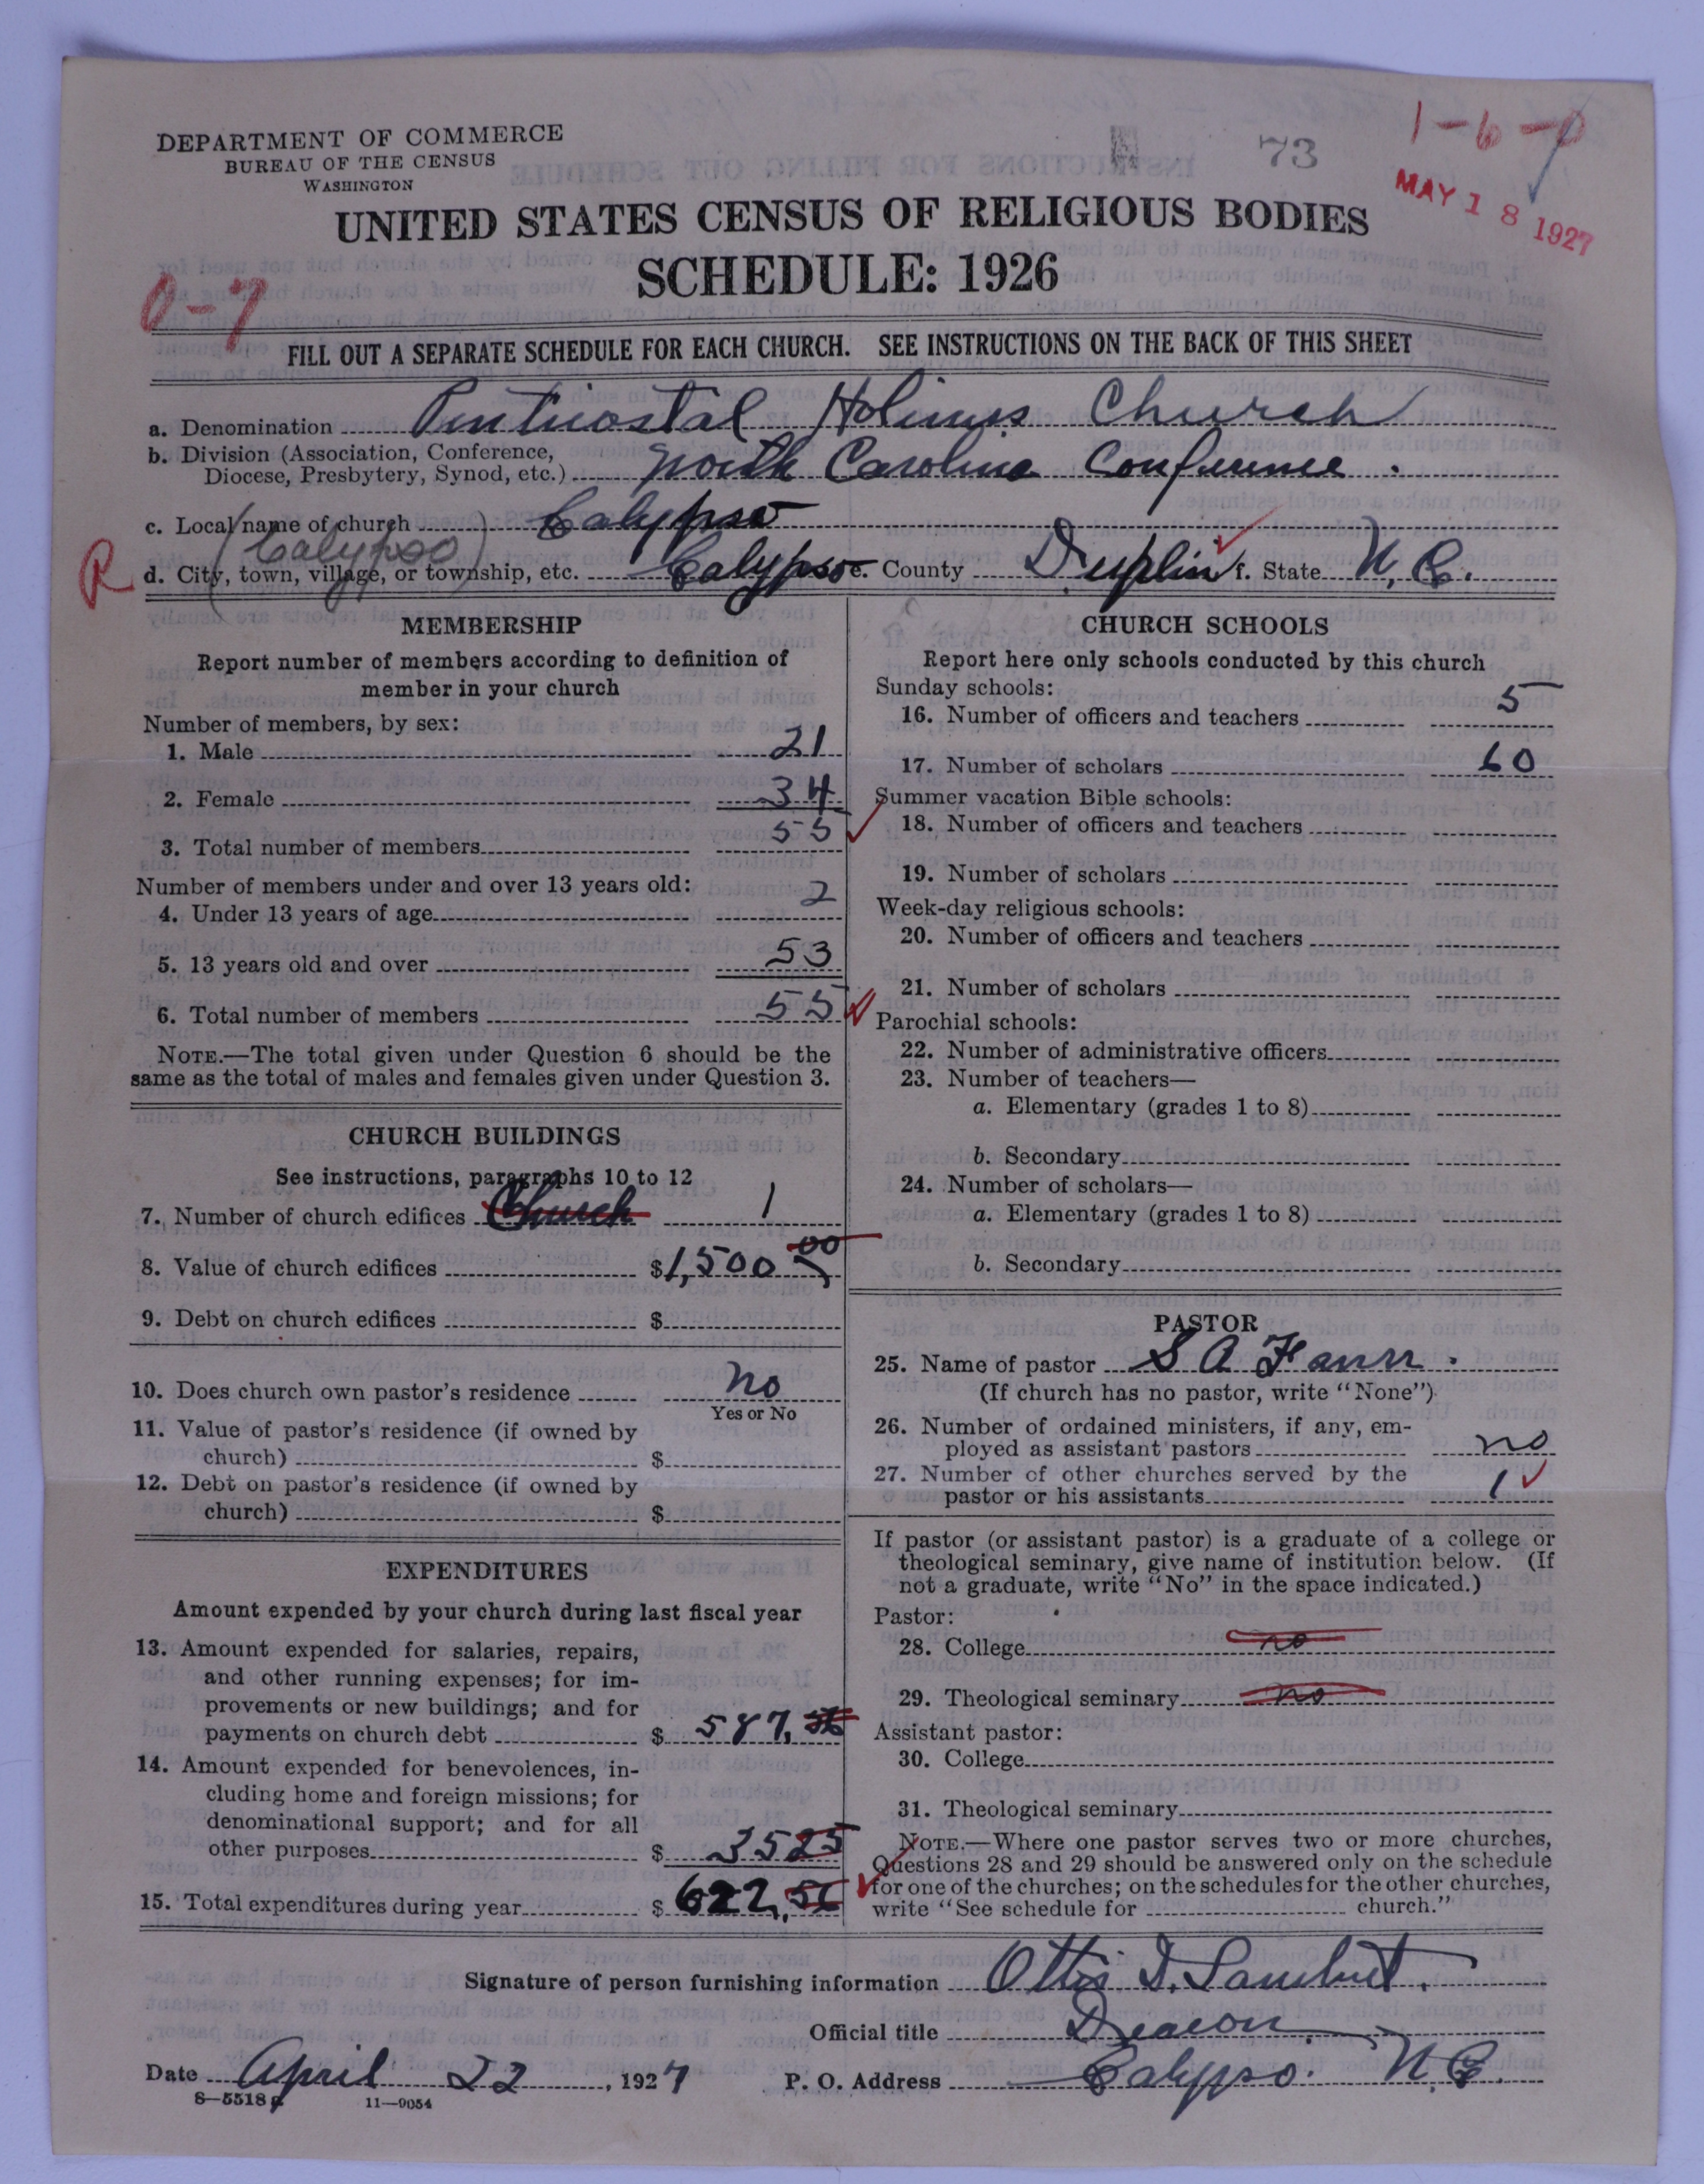 1-6-0
DEPARTMENT OF COMMERCE
BUREAU OF THE CENSUS
WASHINGTON
73
MAY 18 1927
UNITED STATES CENSUS OF RELIGIOUS BODIES
SCHEDULE: 1926
0-7
FILL OUT A SEPARATE SCHEDULE FOR EACH CHURCH. SEE INSTRUCTIONS ON THE BACK OF THIS SHEET
a. Denomination Penticostal Holiness Church
b. Division (Association, Conference,
Diocese, Presbytery, Synod, etc.) North Carolina Conference.
c. Local name of church Calypso
(Calypso)
R d. City, town, village, or township, etc. Calypso e. County Duplin f. State N. C.
MEMBERSHIP
Report number of members according to definition of
member in your church
Number of members, by sex:
1. Male 21
2. Female 34
3. Total number of members 55
Number of members under and over 13 years old:
4. Under 13 years of age 2
5. 13 years old and over 53
6. Total number of members 55
NOTE.—The total given under Question 6 should be the
same as the total of males and females given under Question 3.
CHURCH BUILDINGS
See instructions, paragraphs 10 to 12
7. Number of church edifices Church 1
8. Value of church edifices $1,500 00
9. Debt on church edifices $
10. Does church own pastor's residence no
Yes or No
11. Value of pastor's residence (if owned by
church) $
12. Debt on pastor's residence (if owned by
church) $
EXPENDITURES
Amount expended by your church during last fiscal year
13. Amount expended for salaries, repairs,
and other running expenses; for im-
provements or new buildings; and for
payments on church debt $ 587,
14. Amount expended for benevolences, in-
cluding home and foreign missions; for
denominational support; and for all
other purposes $ 3525
15. Total expenditures during year $ 622,
CHURCH SCHOOLS
Report here only schools conducted by this church
Sunday schools:
16. Number of officers and teachers 5
17. Number of scholars 60
Summer vacation Bible schools:
18. Number of officers and teachers
19. Number of scholars
Week-day religious schools:
20. Number of officers and teachers
21. Number of scholars
Parochial schools:
22. Number of administrative officers
23. Number of teachers—
a. Elementary (grades 1 to 8)
b. Secondary
24. Number of scholars—
a. Elementary (grades 1 to 8)
b. Secondary
PASTOR
25. Name of pastor S A
(If church has no pastor, write "None")
26. Number of ordained ministers, if any, em-
ployed as assistant pastors no
27. Number of other churches served by the
pastor or his assistants 1
If pastor (or assistant pastor) is a graduate of a college or
theological seminary, give name of institution below. (If
not a graduate, write "No" in the space indicated.)
Pastor:
28. College no
29. Theological seminary no
Assistant pastor:
30. College
31. Theological seminary
NOTE.—Where one pastor serves two or more churches,
Questions 28 and 29 should be answered only on the schedule
for one of the churches; on the schedules for the other churches,
write "See schedule for church."
Signature of person furnishing information Ottis D. Lambert.
Official title Deacon.
Date April 22, 1927 P. O. Address Calypso. N. C.
8—5518 a 11—9054